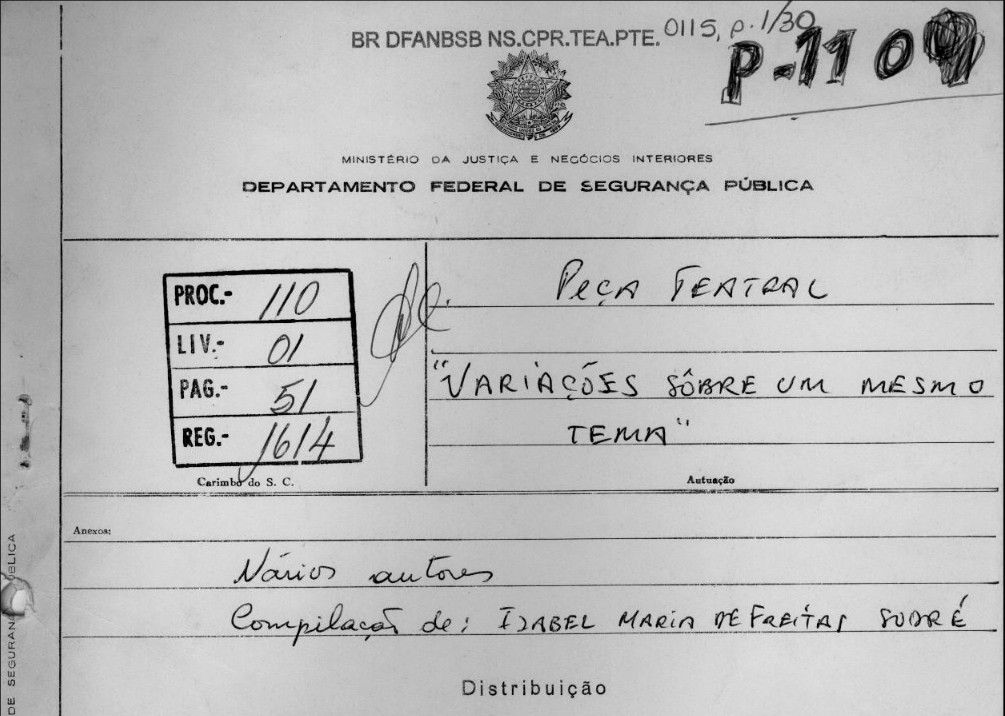 BR DFANBSB NS.CPR.TEA.PTE. 0115, p.1/30
P-110
MINISTÉRIO DA JUSTIÇA E NEGÓCIOS INTERIORES
DEPARTAMENTO FEDERAL DE SEGURANÇA PÚBLICA
PROC.- 110
LIV.- 01
PAG.- 51
REG.- 1614
Carimbo do S. C.
PEÇA TEATRAL
"VARIAÇÕES SÔBRE UM MESMO
TEMA"
Autuação
Anexos:
Vários autores
Compilação de: IZABEL MARIA DE FREITAS SODRÉ
Distribuição
DE SEGURAN BLICA